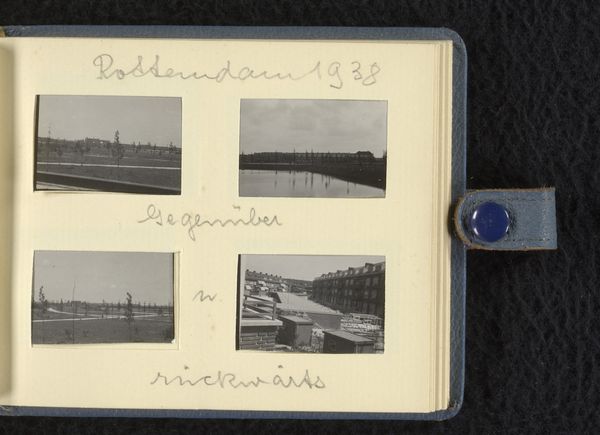 Rotterdam 1938
Gegenüber
u.
rückwärts